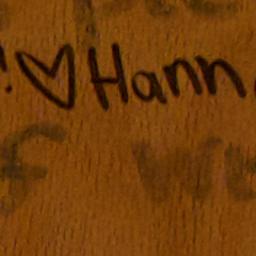 ! ♡ Hann
f we